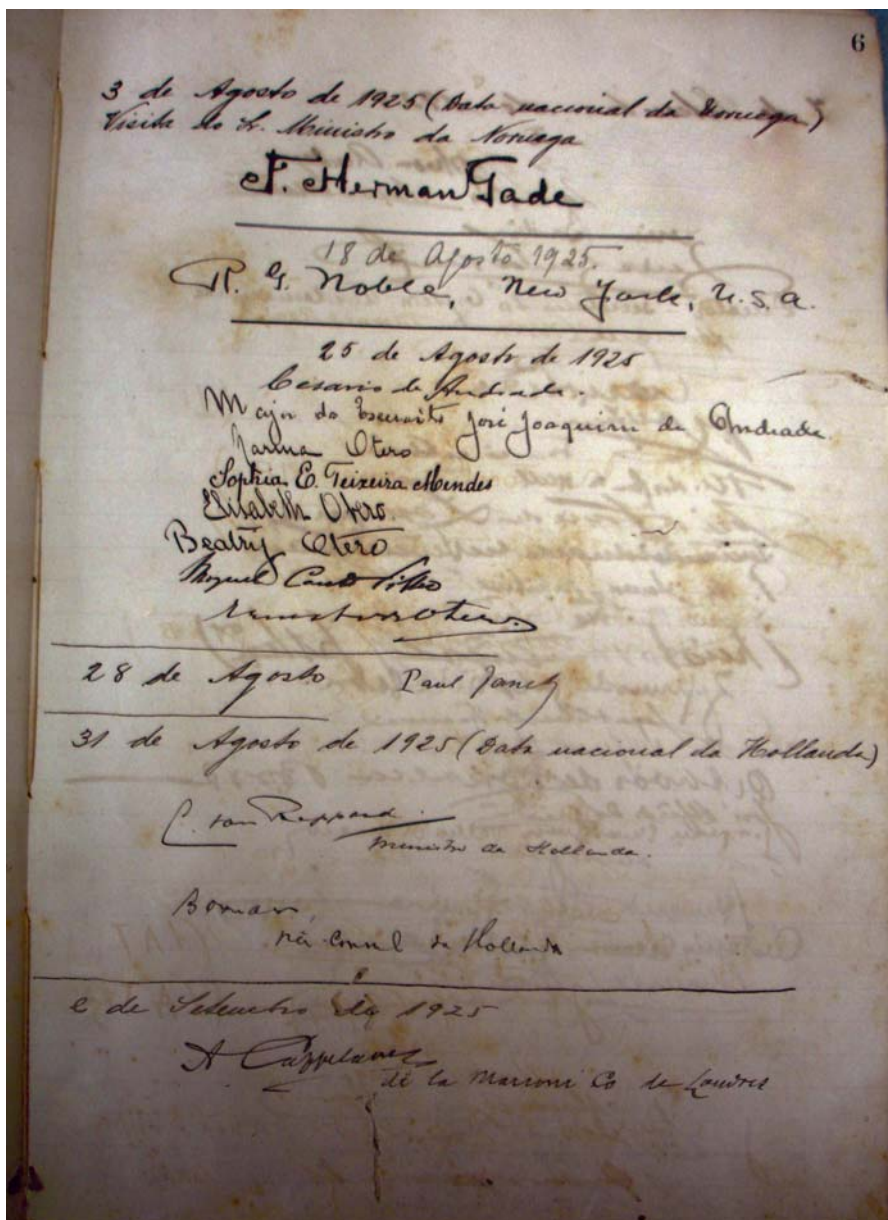 6
3 de Agosto de 1925 (Data nacional da Noruega)
Visita do Sr. Ministro da Noruega
F. Herman Gade
18 de Agosto 1925.
R. G. Noble, New York, U.S.A.
25 de Agosto de 1925
Cesario de Andrade.
Major do Exercito José Joaquim de Andrade
Marina Otero
Sophia E. Teixeira Mendes
Elisabeth Otero.
Beatriz Otero
Miguel Couto Filho
Otero.
28 de Agosto Paul
31 de Agosto de 1925 (Data nacional da Hollanda)
C. van Rappard.
Ministro da Hollanda.
Consul da Hollanda
de Setembro de 1925
A
de la Marconi Co de Londres